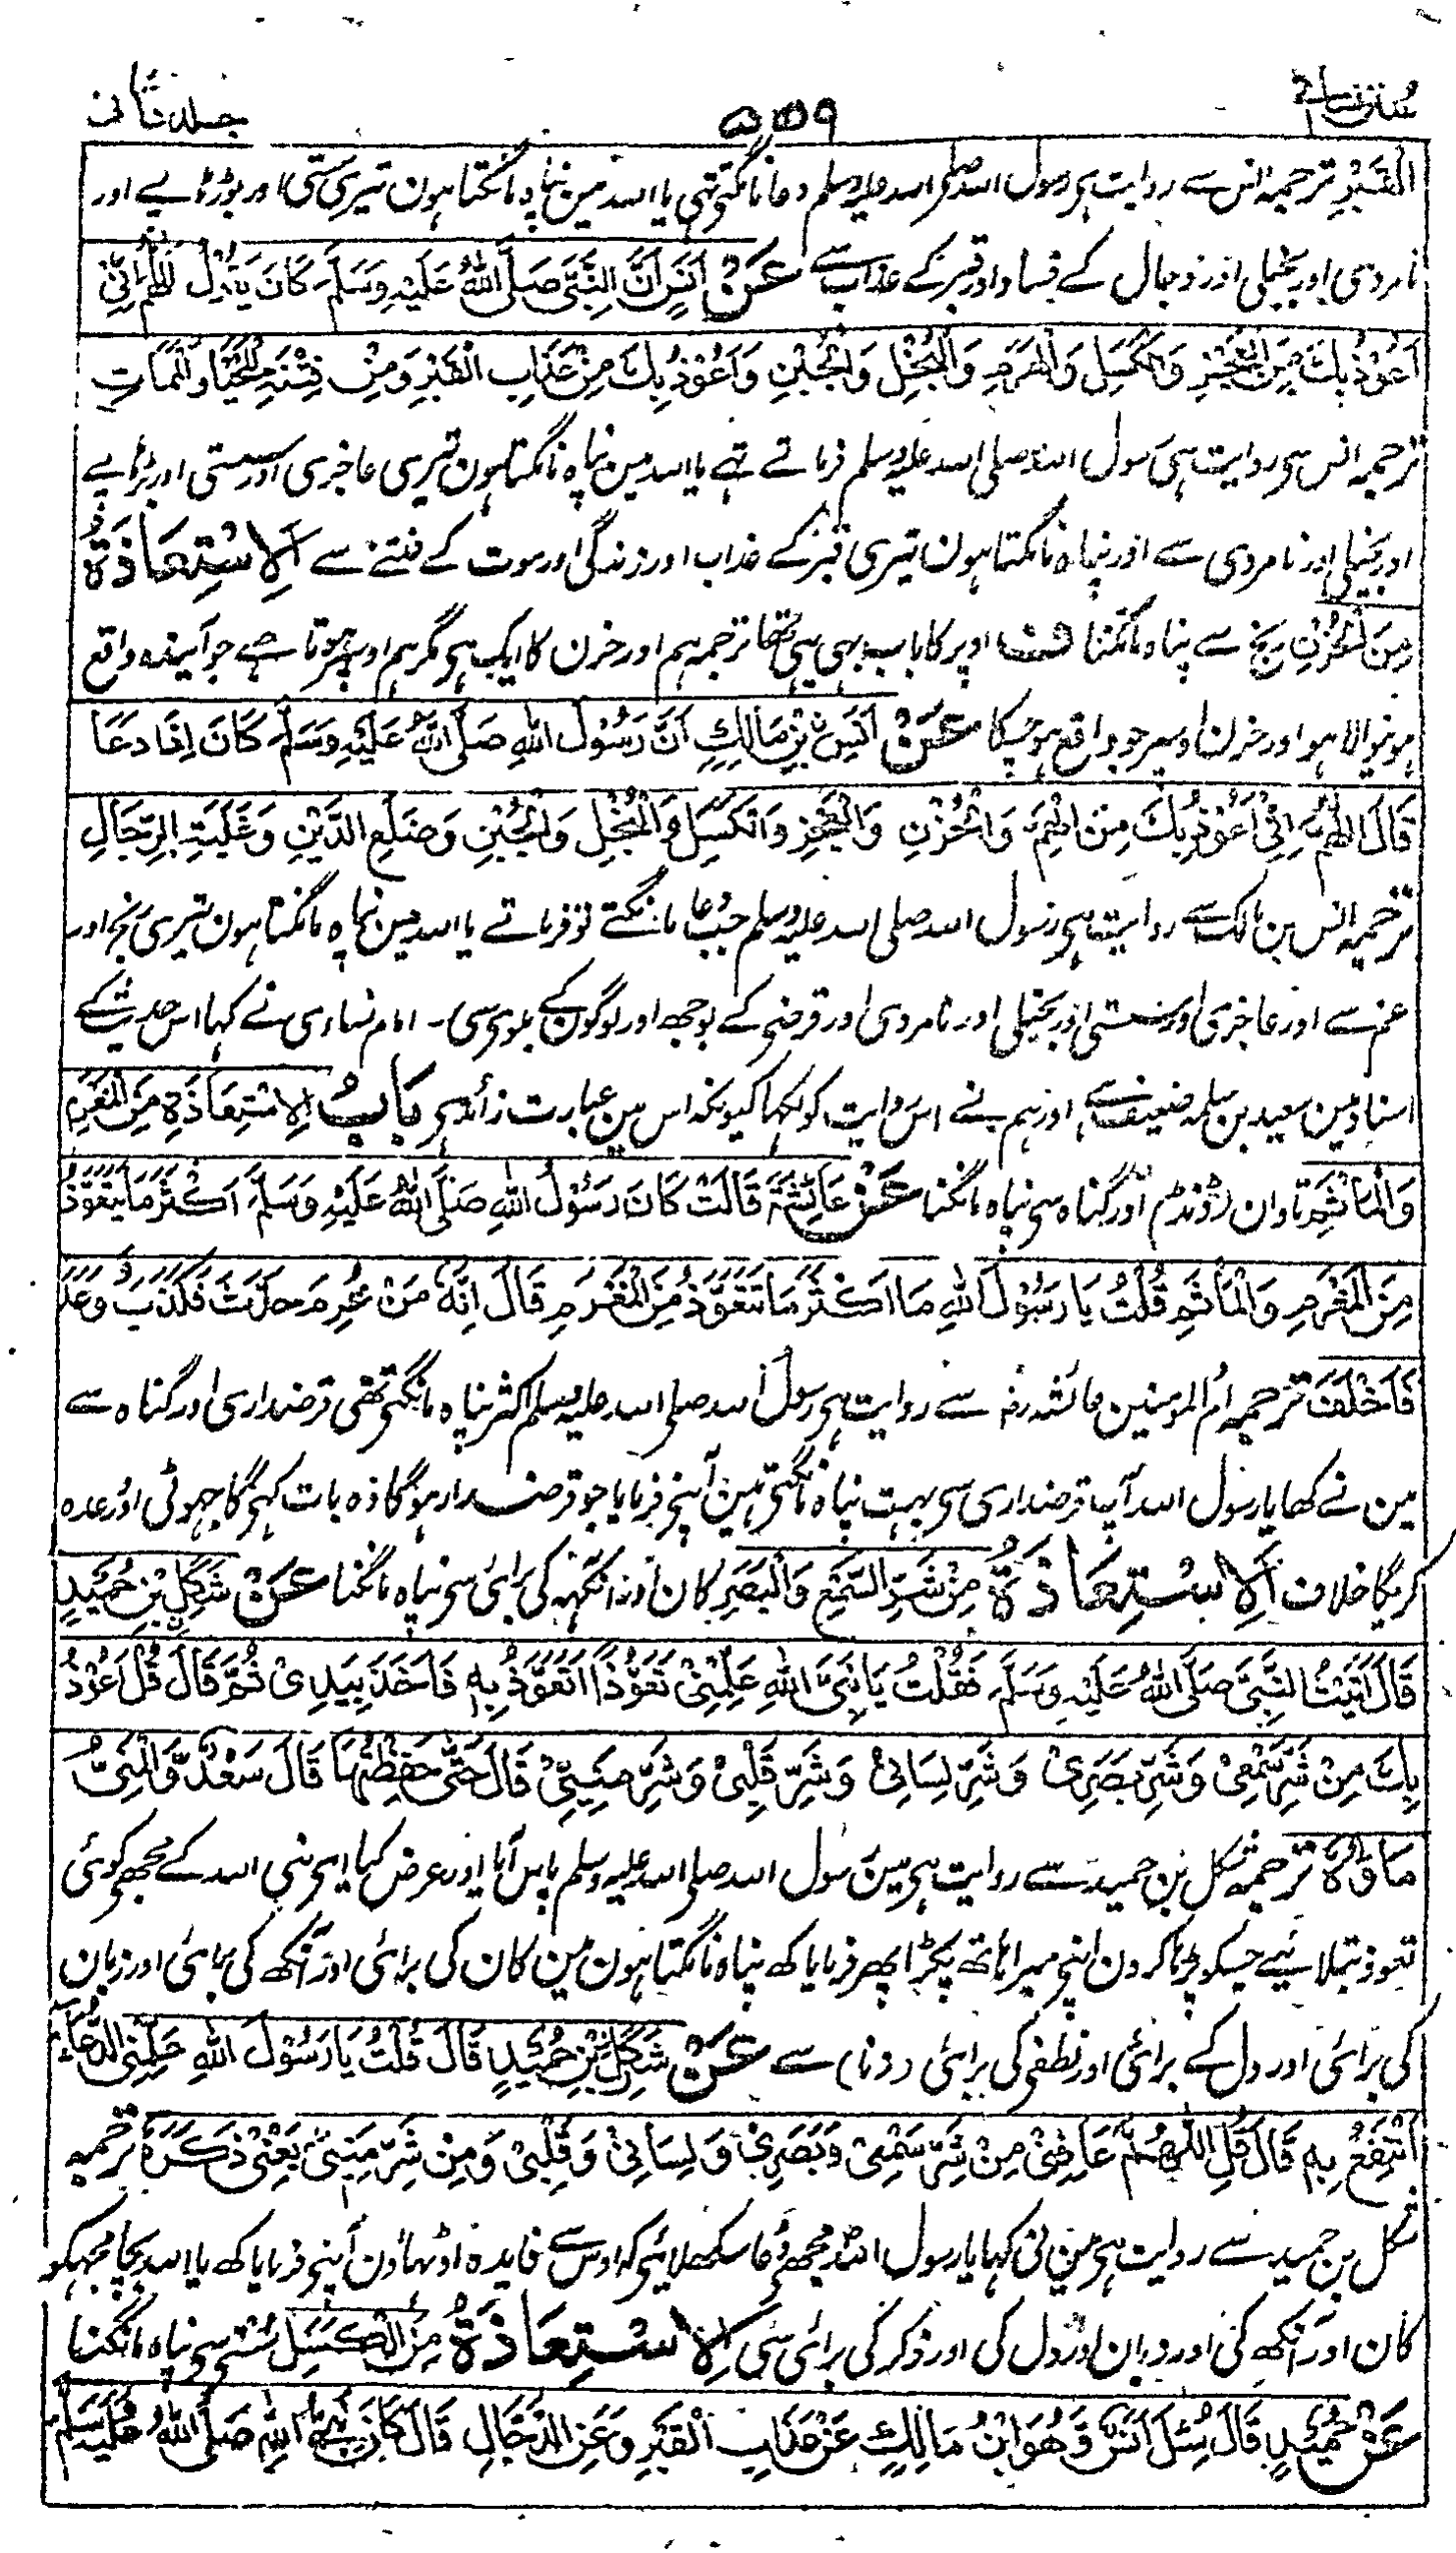 سنن نسائی ۵۵۹ جلد ثانی
الْقَبْرِ ترجمہ انس سے روایت ہی رسول اللہ صلی اللہ علیہ وسلم دعا مانگتی تہی یا اللہ مین پناہ مانگتا ہون تیری سستی اور بوڑہاپے اور
نامردی اور بخیلی اور دجال کے فساد اور قبر کے عذاب سے عَنْ اَنَسٍ اَنَّ النَّبِیَّ صَلَّی اللّٰہُ عَلَیْہِ وَسَلَّمَ کَانَ یَقُوْلُ اللّٰھُمَّ اِنِّیْ
اَعُوْذُ بِکَ مِنَ الْعَجْزِ وَالْکَسَلِ وَالْہَرَمِ وَالْبُخْلِ وَالْجُبْنِ وَاَعُوْذُ بِکَ مِنْ عَذَابِ الْقَبْرِ وَمِنْ فِتْنَۃِ الْمَحْیَا وَالْمَمَاتِ
ترجمہ انس سی روایت ہی رسول اللہ صلی اللہ علیہ وسلم فرماتے تہے یا اللہ مین پناہ مانگتا ہون تیری عاجزی اور سستی اور بڑہاپے
اور بخیلی اور نامردی سے اور پناہ مانگتا ہون تیری قبر کے عذاب اور زندگی اور موت کے فتنے سے اَلْاِسْتِعَاذَۃُ
مِنَ الْحُزْنِ رنج سے پناہ مانگنا ف اوپر کا باب بہی یہی تہا ترجمہ ہم اور حزن کا ایک ہی مگر ہم اوسپر ہوتا ہے جو آیندہ واقع
ہونیوالا ہو اور حزن اوسپر جو واقع ہوچکا عَنْ اَنَسِ بْنِ مَالِکٍ اَنَّ رَسُوْلَ اللّٰہِ صَلَّی اللّٰہُ عَلَیْہِ وَسَلَّمَ کَانَ اِذَا دَعَا
قَالَ اللّٰھُمَّ اِنِّیْ اَعُوْذُ بِکَ مِنَ الْہَمِّ وَالْحُزْنِ وَالْعَجْزِ وَالْکَسَلِ وَالْبُخْلِ وَالْجُبْنِ وَضَلَعِ الدَّیْنِ وَغَلَبَۃِ الرِّجَالِ
ترجمہ انس بن مالک سے روایت ہی رسول اللہ صلی اللہ علیہ وسلم جب دعا مانگتے تو فرماتے یا اللہ مین پناہ مانگتا ہون تیری رنج اور
غم سے اور عاجزی اور سستی اور بخیلی اور نامردی اور قرضی کے بوجھ اور لوگون کے بلوی سی۔ امام نسائی نے کہا اس حدیث کے
اسناد مین سعید بن سلمہ ضعیف ہے اور ہم نے اس روایت کو لکہا کیونکہ اس مین عبارت زائد ہی بَابُ الْاِسْتِعَاذَۃِ مِنَ الْمَغْرَمِ
وَالْمَأْثَمِ تاوان ڈونڈم اور گناہ سی پناہ مانگنا عَنْ عَائِشَۃَ قَالَتْ کَانَ رَسُوْلُ اللّٰہِ صَلَّی اللّٰہُ عَلَیْہِ وَسَلَّمَ اَکْثَرَ مَا یَتَعَوَّذُ
مِنَ الْمَغْرَمِ وَالْمَأْثَمِ قُلْتُ یَا رَسُوْلَ اللّٰہِ مَا اَکْثَرَ مَا تَتَعَوَّذُ مِنَ الْمَغْرَمِ قَالَ اِنَّہٗ مَنْ غَرِمَ حَدَّثَ فَکَذَبَ وَوَعَدَ
فَاَخْلَفَ ترجمہ ام المومنین عائشہ رض سے روایت ہی رسول اللہ صلی اللہ علیہ وسلم اکثر پناہ مانگتی تھی قرضداری اور گناہ سے
مین نے کھا یا رسول اللہ آپ قرضداری سی بہت پناہ مانگتی ہین آپنی فرمایا جو قرضدار ہوگا وہ بات کہی گا جہوٹی اور وعدہ
کریگا خلاف اَلْاِسْتِعَاذَۃُ مِنْ شَرِّ السَّمْعِ وَالْبَصَرِ کان اور آنکہہ کی برائی سی پناہ مانگنا عَنْ شَکَلِ بْنِ حُمَیْدٍ
قَالَ اَتَیْتُ النَّبِیَّ صَلَّی اللّٰہُ عَلَیْہِ وَسَلَّمَ فَقُلْتُ یَا نَبِیَّ اللّٰہِ عَلِّمْنِیْ تَعَوُّذًا اَتَعَوَّذُ بِہٖ فَاَخَذَ بِیَدِیْ ثُمَّ قَالَ قُلْ اَعُوْذُ
بِکَ مِنْ شَرِّ سَمْعِیْ وَشَرِّ بَصَرِیْ وَشَرِّ لِسَانِیْ وَشَرِّ قَلْبِیْ وَشَرِّ مَنِیِّیْ قَالَ حَتّٰی حَفِظْتُہَا قَالَ سَعْدٌ وَّالْمَنِیُّ
مَاؤُہٗ ترجمہ شکل بن حمید سے روایت ہی مین رسول اللہ صلی اللہ علیہ وسلم پاس آیا اور عرض کیا ای نبی اللہ کے مجھی کوئی
تعوذ بتلائیے جسکو پڑہا کرون آپنی میرا ہاتھ پکڑا پھر فرمایا کھ پناہ مانگتا ہون مین کان کی برائی اور آنکھ کی برائی اور زبان
کی برائی اور دل کے برائی اور نطفی کی برائی (زنا) سے عَنْ شَکَلِ بْنِ حُمَیْدٍ قَالَ قُلْتُ یَا رَسُوْلَ اللّٰہِ عَلِّمْنِی الدُّعَاءَ
اَنْتَفِعُ بِہٖ قَالَ قُلِ اللّٰھُمَّ عَافِنِیْ مِنْ شَرِّ سَمْعِیْ وَبَصَرِیْ وَلِسَانِیْ وَقَلْبِیْ وَمِنْ شَرِّ مَنِیِّیْ یَعْنِیْ ذَکَرَہٗ ترجمہ
شکل بن حمید سے روایت ہی مین نی کہا یا رسول اللہ مجھی دعا سکھلائی کہ اوس سے فایدہ اوٹہاؤن آپنی فرمایا کھ یا اللہ بچا مجہکو
کان اور آنکھ کی اور زبان اور دل کی اور ذکر کی برائی سی اَلْاِسْتِعَاذَۃُ مِنَ الْکَسَلِ سستی سی پناہ مانگنا
عَنْ حُمَیْدٍ قَالَ سُئِلَ اَنَسٌ وَّھُوَ ابْنُ مَالِکٍ عَنْ عَذَابِ الْقَبْرِ وَعَنِ الدَّجَّالِ قَالَ کَانَ نَبِیُّ اللّٰہِ صَلَّی اللّٰہُ عَلَیْہِ وَسَلَّمَ